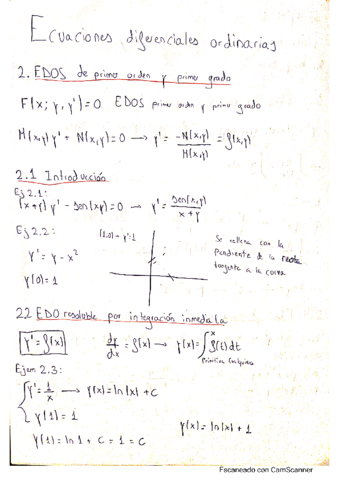 Ecuaciones diferenciales ordinarias
2. EDOS de primer orden y primer grado
F(x; y, y')=0 EDOS primer orden y primer grado
M(x,y) y' + N(x,y)=0 → y' = -N(x,y)/M(x,y) = f(x,y)
2.1 Introducción
Ej 2.1:
(x+y) y' - sen(xy)=0 → y' = sen(x,y)/x+y
Ej 2.2:
y' = y - x²
y(0)=1
(1,0) → y'=1
Se rellena con la
pendiente de la recta
tangente a la curva
2.2 EDO resoluble por integración inmediata
y' = f(x)
dy/dx = f(x) → y(x) = ∫ˣ f(t) dt
primitiva cualquiera
Ejem 2.3:
y' = 1/x → y(x) = ln|x| + C
y(1) = 1
y(1) = ln 1 + C = 1 = C
y(x) = ln|x| + 1
Escaneado con CamScanner